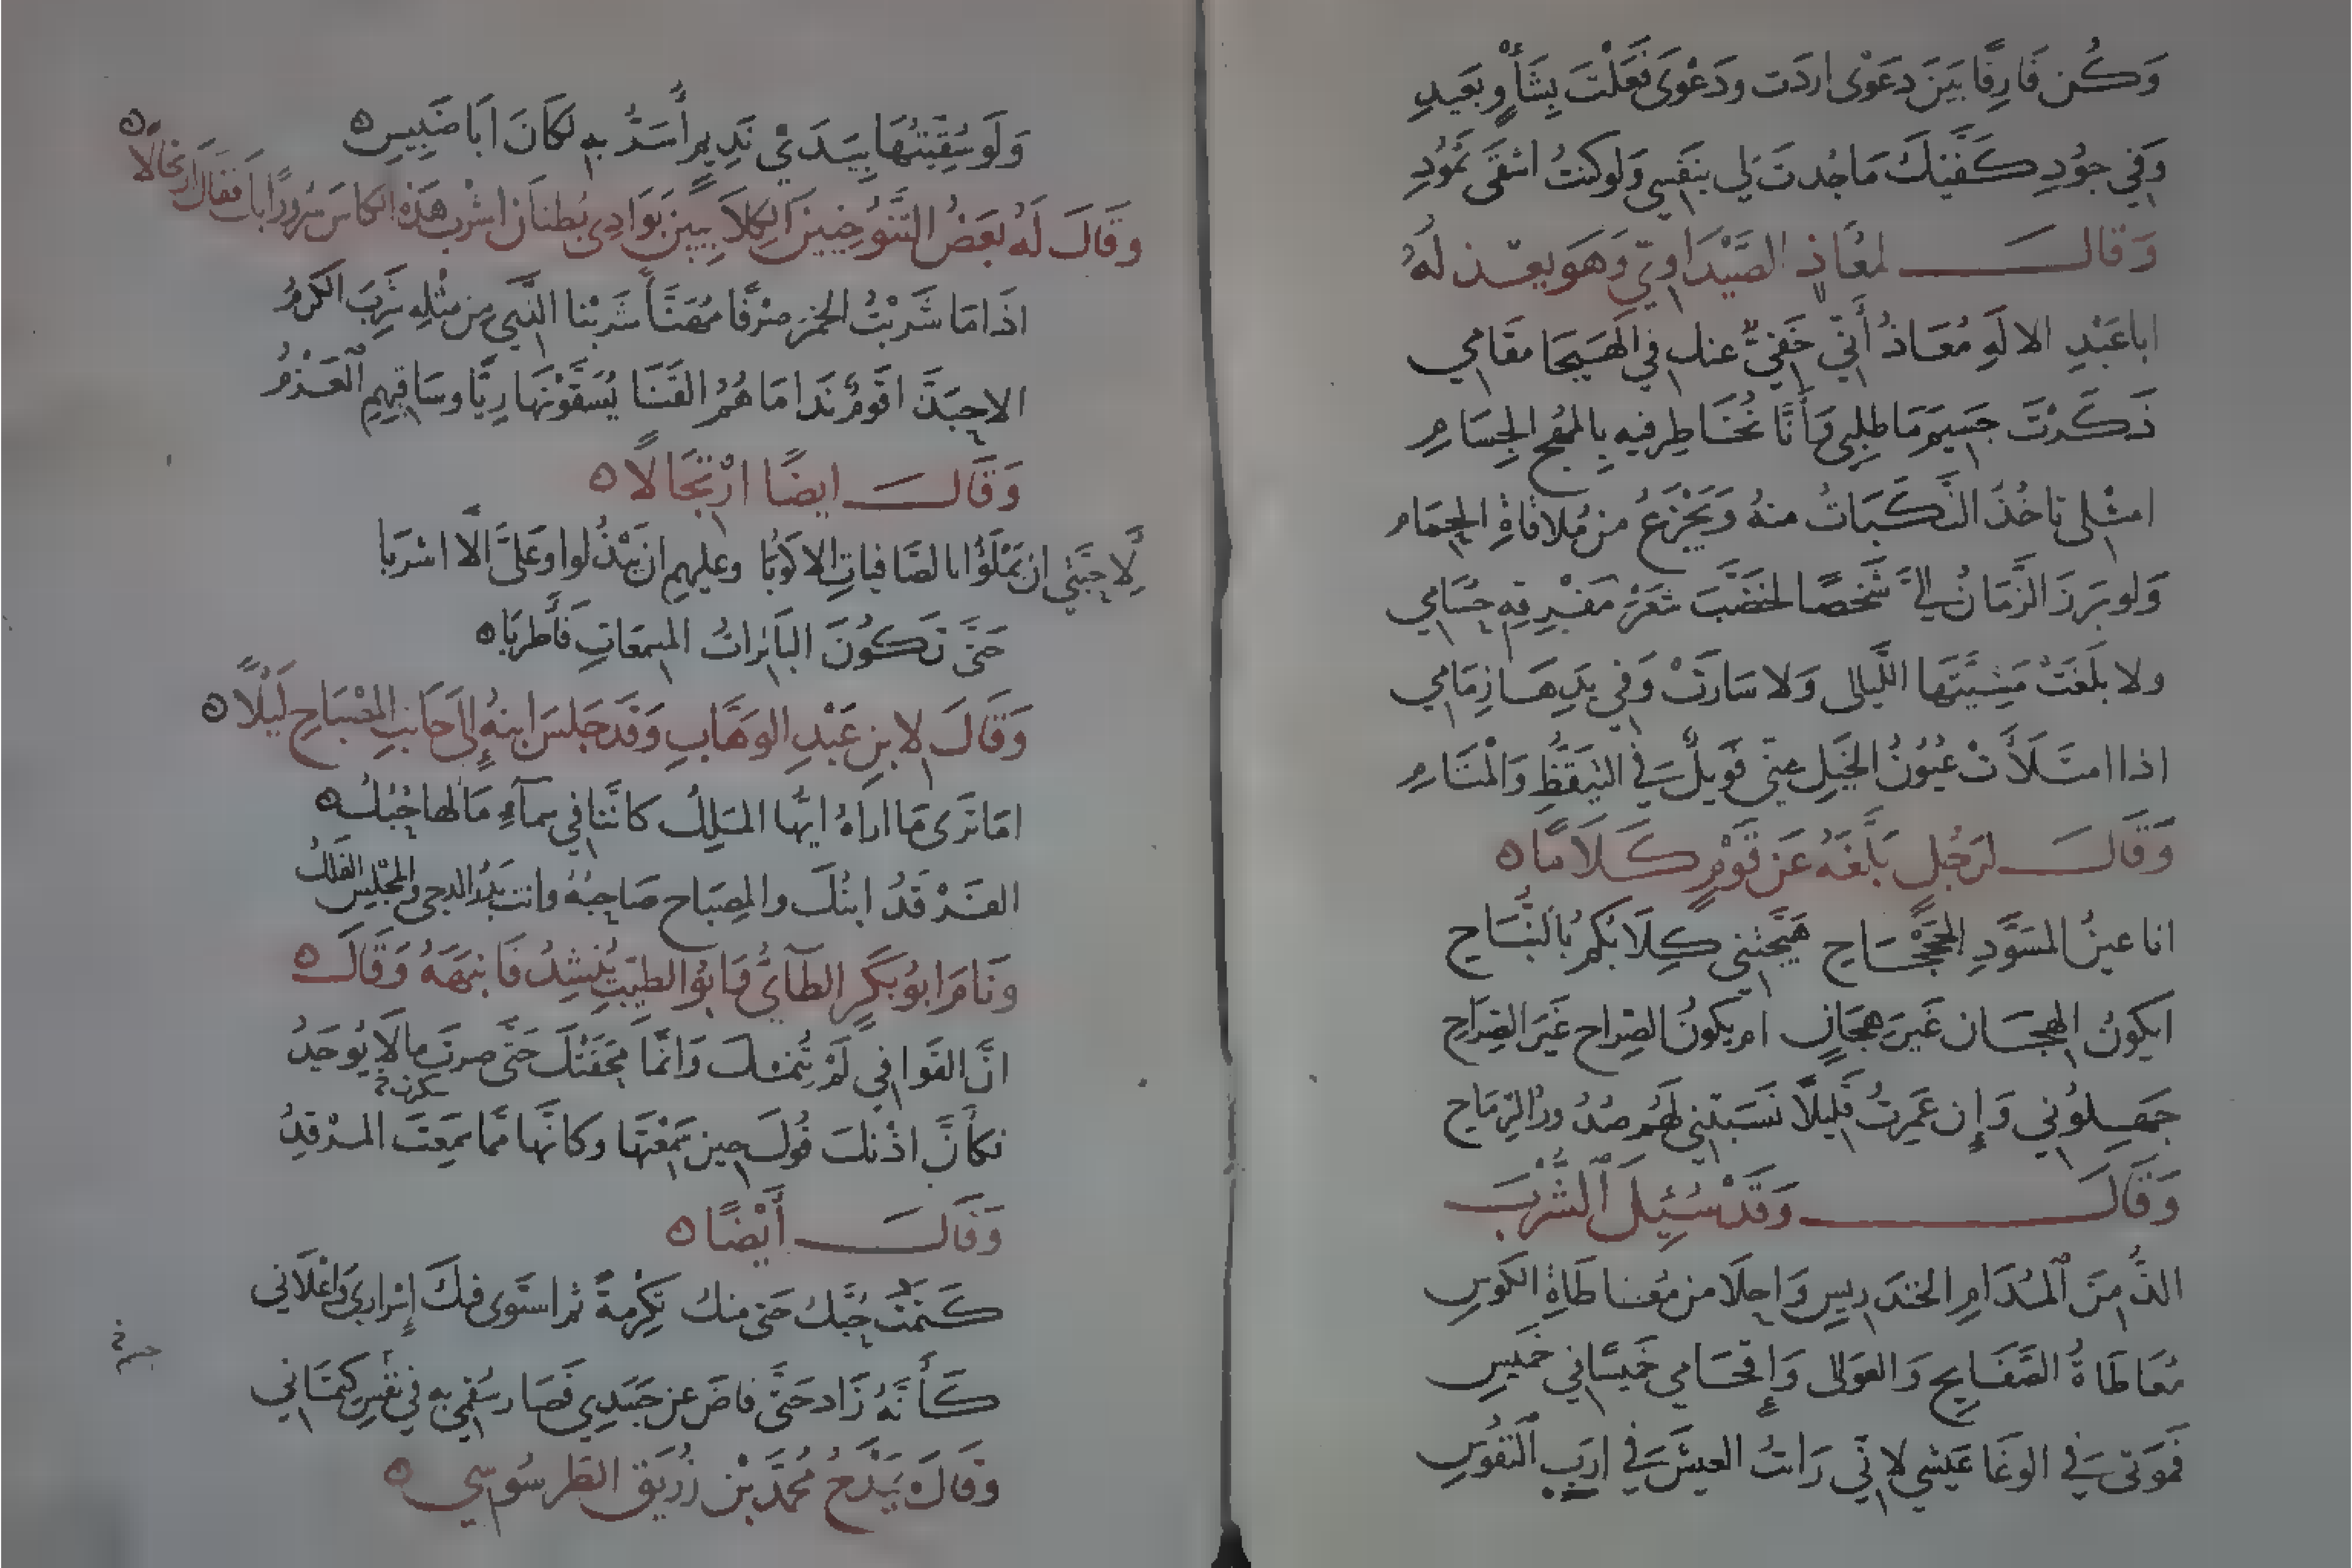 وَكُن فَارِقًا بَيْنَ دَعْوَى اردَت ودَعْوَى فَعَلْتَ بِشَأْوٍ بَعِيدِ
وَفي جُودِ كَفَّيْكَ مَا جُدتَ لي بنَفسِي وَلَو كنتُ اشقَى ثَمُودِ
وَقَالَ لمُعَاذِ الصَّيْدَاوِيّ وَهَو يعذلهُ
ابا عَبْدِ الالَهِ مُعَاذُ أَنّي خَفيٌّ عنك في الهَيجَا مقَامي
ذَكَرْتَ جَسيمَ مَا طلِبي وَأَنَّا نُخَاطِر فيهِ بِالمُهَج الجِسَامِ
امثلى تاخُذُ النَّكَبَاتُ منهُ وَيَجْزَعُ من مُلاقاةِ الحِمَامِ
وَلو بَرَزَ الزَّمَانُ اليَّ شَخصًا لخَضَّبَ شعَرَ مَفْرِقهِ حُسَامي
ولا بلَغَتْ مَشِيَّتَهَا اللَّيالى وَلا سَارَتْ وَفي يَدِهَا زِمَامي
اذا امتَلَأَتْ عُيُونُ الخَيلِ منّي فَويلٌ في التيَقُّظِ وَالْمنَامِ
وَقَالَ لرَجُلٍ بَلَّغَهُ عَن قَوْمٍ كَلَامًا ه
انا عينُ المسَوَّدِ الجَحْجَاحِ هَيَّجتني كِلَابُكم بالنُّبَاحِ
ايكونُ الهِجَان غَيرَ هِجَانٍ ام يكونُ الصّراح غَيَر الصّرَاحِ
جَهِلوُني وَإِن عَمِرتُ قَليلًا نَسَبَتني لَهُم صُدُورُ الرِّمَاحِ
وَقَالَ وَقَدْ سُئِلَ الشُّرْبَ
الذُّ مِنَ المُدَامِ الخندَريسِ وَاحلَا من مُعَاطَاةِ الكَوسِ
مُعَاطَاةُ الصَّفَايِحِ وَالعَوالى وَإِقحَامي خَميسًا في خَميسِ
فَمَوتي في الوَغَا عَيشي لاني رَاتُ العيشَ في ارَبِ النّفُوسِ
وَلَو سُقِّيتُهَا بِيَدَيْ نَديمٍ أُسَرُّ بهِ لكَانَ ابَا ضَبِيسِ ه
وقَالَ لَهُ بَعضُ التَّنُوخِيينَ الكِلَابيين بَوَادِى بُطنَان اشْرب هَذِهِ الكاسَ سُرورًا بك فقَالَ ارتجَالًا ه
اذَا مَا شَرِبتُ الخمرَ صِرْفًا مُهَنَّأً شَرِبْنا الَّذي من مثْلهِ شَرِبَ الكَرمُ
الا حبَذَّا قومٌ نَدَامَا هُمُ القَنَا يُسَقّوْنَهَا رِيًّا وسَاقيهم العَزْمُ
وَقَالَ ايضًا ارْتجَالًا ه
لِاحِبَّتي ان يَمْلَؤُا بالصَّافياتِ الاكوُبَا وعليهم ان يَبْذُلوا وعَليَّ الَّا اشرَبَا
حَتَّى تَكُونَ البَاتراتُ المسمعَاتِ فَأَطرَبَا ه
وَقَالَ لابنِ عَبْدِ الوَهَّابِ وَقَد جَلسَ ابنهُ إِلَى جَانبِ المِصْبَاحِ لَيْلًا ه
امَا تَرَى مَا اراهُ ايُّها المَلِكُ كانَّنَا في سمآءٍ مَا لهَا حُبُكُ ه
الفَرْقَدُ ابنُكَ والمِصبَاح صَاحِبُهُ وانتَ بَدْرُ الدجى والمجْلِسُ الفَلكُ
وَنَامَ ابوُ بَكرٍ الطَآئِيُّ وَابُو الطيّبِ يُنشِدُ فَانبَهَهُ وَقَالَ ه
انَّ القَوَافي لَم تُنمْكَ وَانمَّا مَحَقَتْكَ حَتَّى صرتَ مالَا يُوجَدُ
سكرن؟
فكأَنَّ اذْنكَ فُوكَ حين سَمِعْتَهَا وكانَّها ممَّا سَمِعَتَ المرْقِدُ
وَقَالَ أَيْضًا ه
كَتَمْتُ حُبَّكِ حَتى منكِ تَكْرِمةً ثم استَوى فيكَ إِسْراري وَاعْلَاني
كَأَنَّهُ زَاد حَتَّى فاضَ عن جَسَدِي فَصَار سُقمي بهِ في نفس كِتمَاني
جسم
وقَالَ يَمْدَحُ مُحَمَّدَ بْنَ زُرَيق الطَّرسُوسي ه